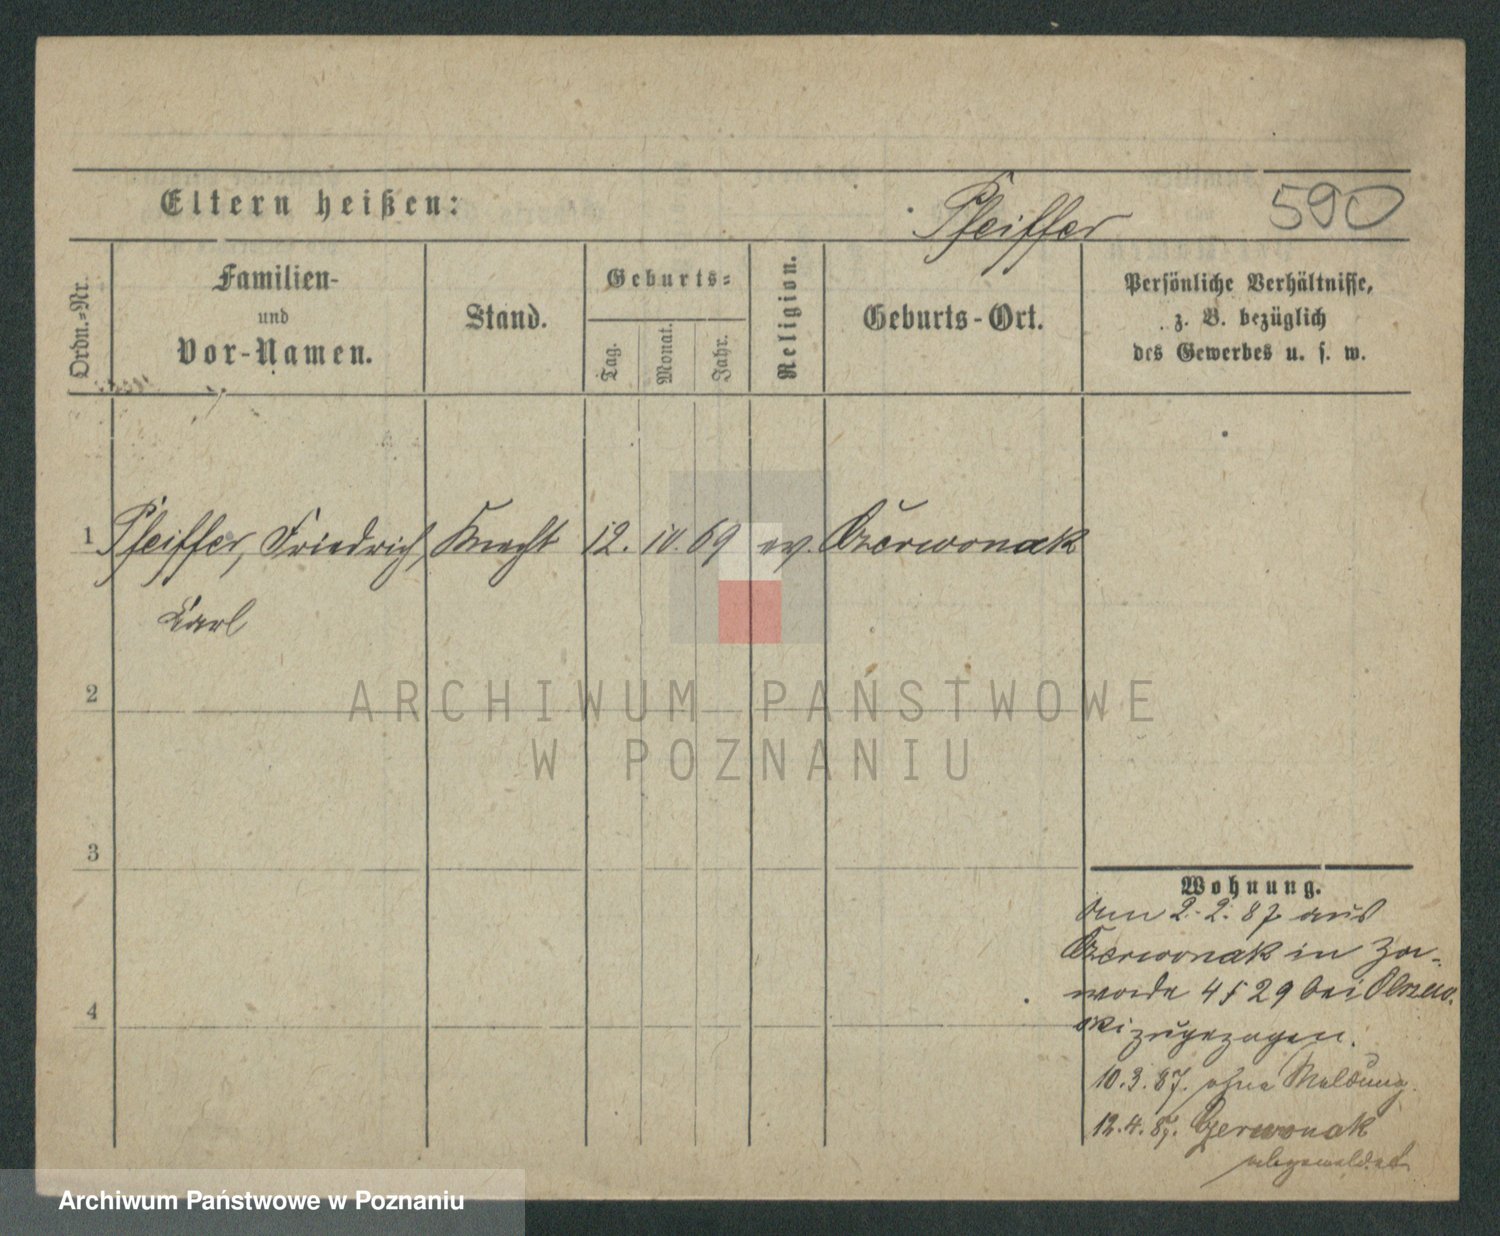 Eltern heißen:
Pfeiffer
590
Ordn.-Nr.
Familien-
und
Vor-Namen.
Stand.
Geburts-
Tag.
Monat.
Jahr.
Religion.
Geburts-Ort.
Persönliche Verhältnisse,
z. B. bezüglich
des Gewerbes u. s. w.
1 Pfeiffer, Friedrich, Knecht 12. 10. 69 ev. Czerwonak
Karl
2
ARCHIWUM PAŃSTWOWE
W POZNANIU
3
Wohnung.
Am 2. 2. 87 aus
Czerwonak in Za-
wade 4 f 29 bei
4
ski zugezogen.
10. 3. 87. ohne Meldung.
12. 4. 87. Czerwonak
abgemeldet
Archiwum Państwowe w Poznaniu